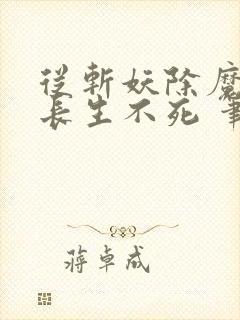 從斬妖除魔
長生不死 筆
蔣卓成